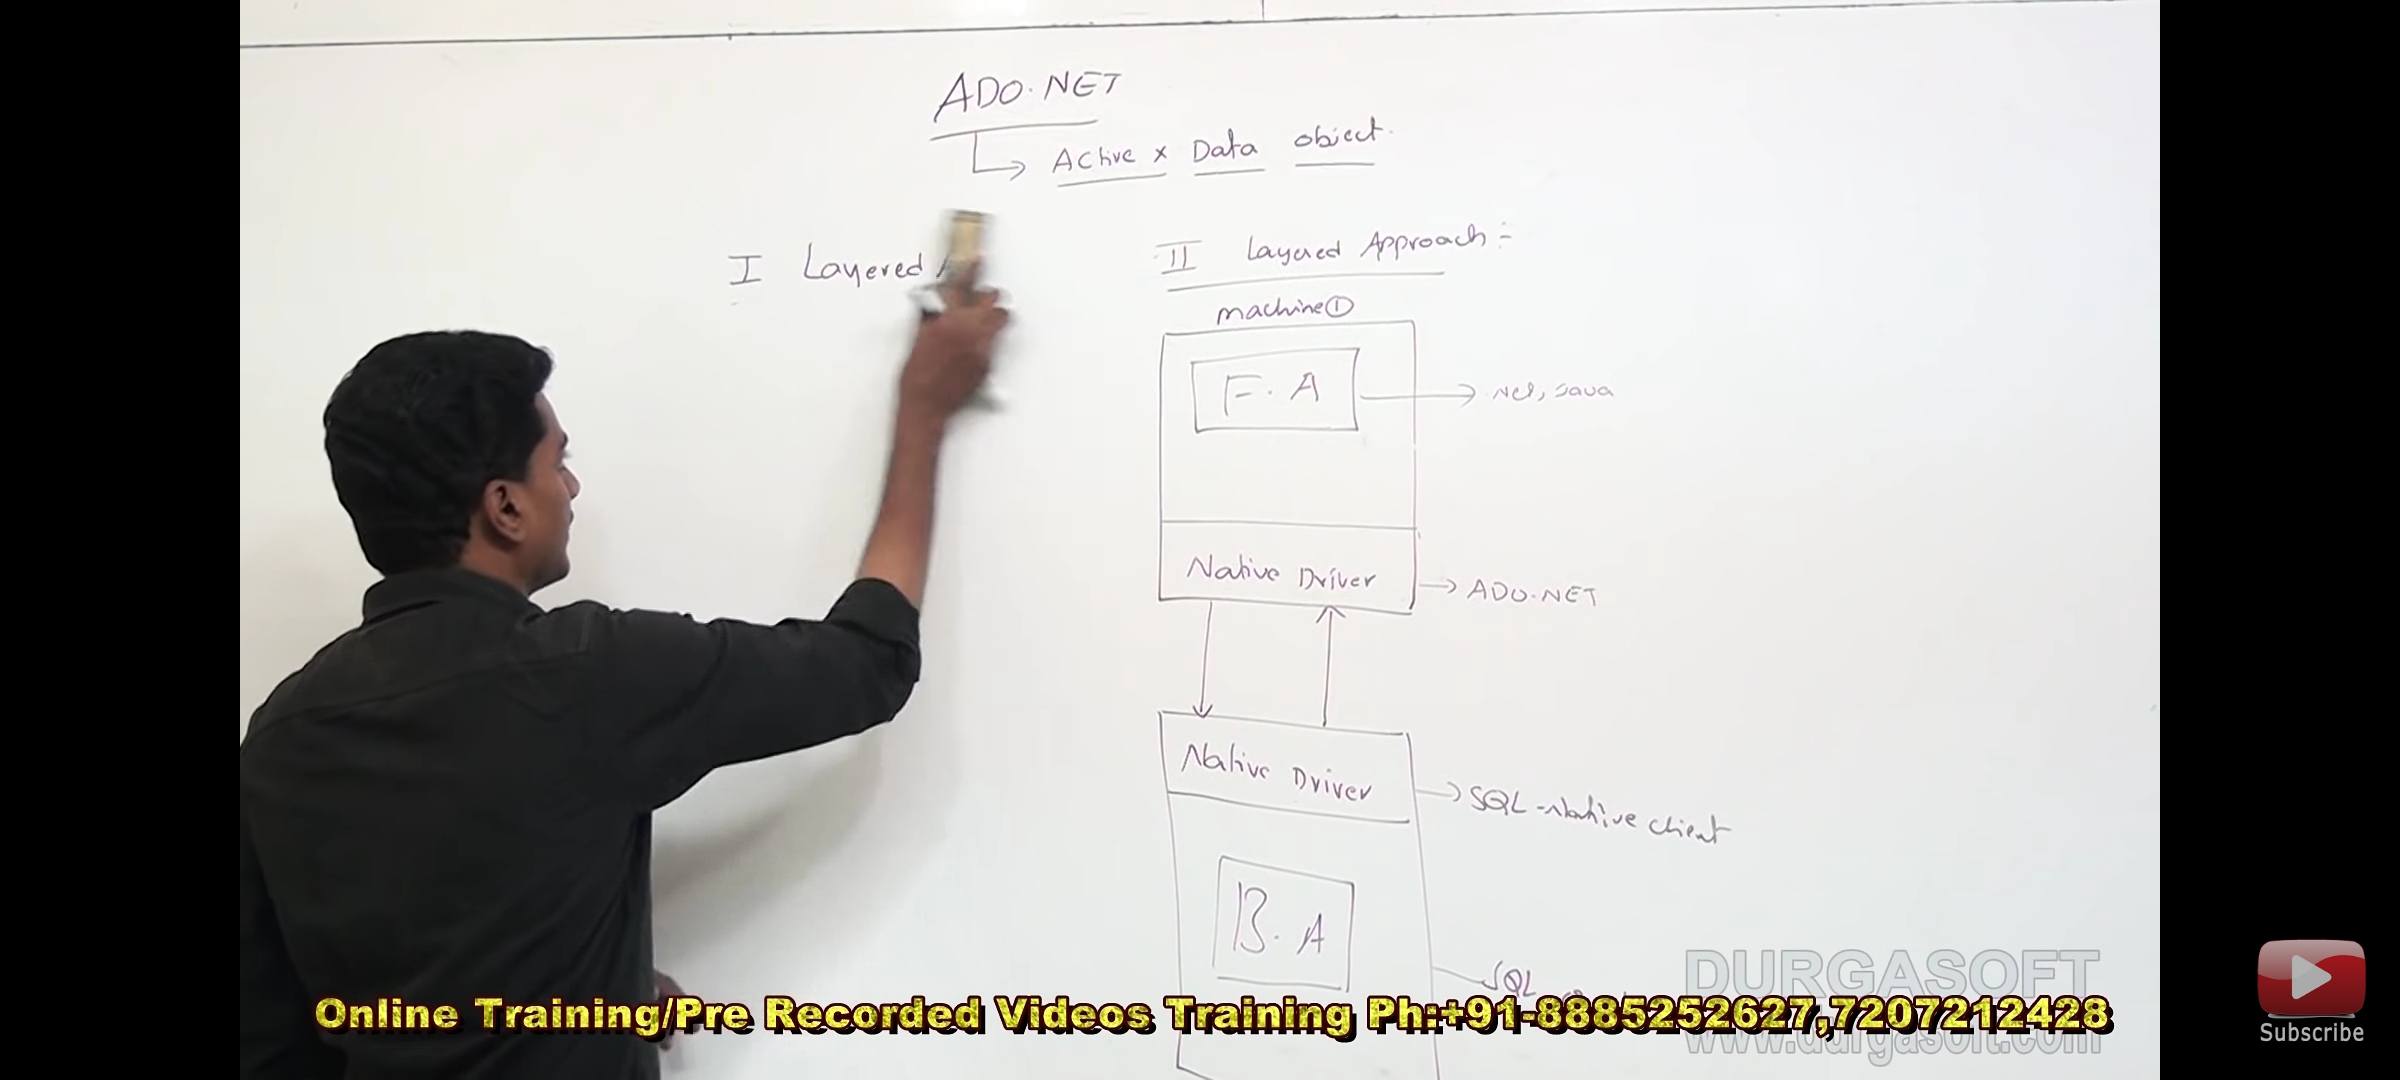 ADO.NET
Active x Data object.
I Layered
II Layered Approach :-
machine ①
F.A
Net, Java
Native Driver
ADO.NET
Native Driver
SQL-Native client
B.A
SQL
DURGASOFT
Online Training/Pre Recorded Videos Training Ph:+91-8885252627,7207212428
www.durgasoft.com
Subscribe